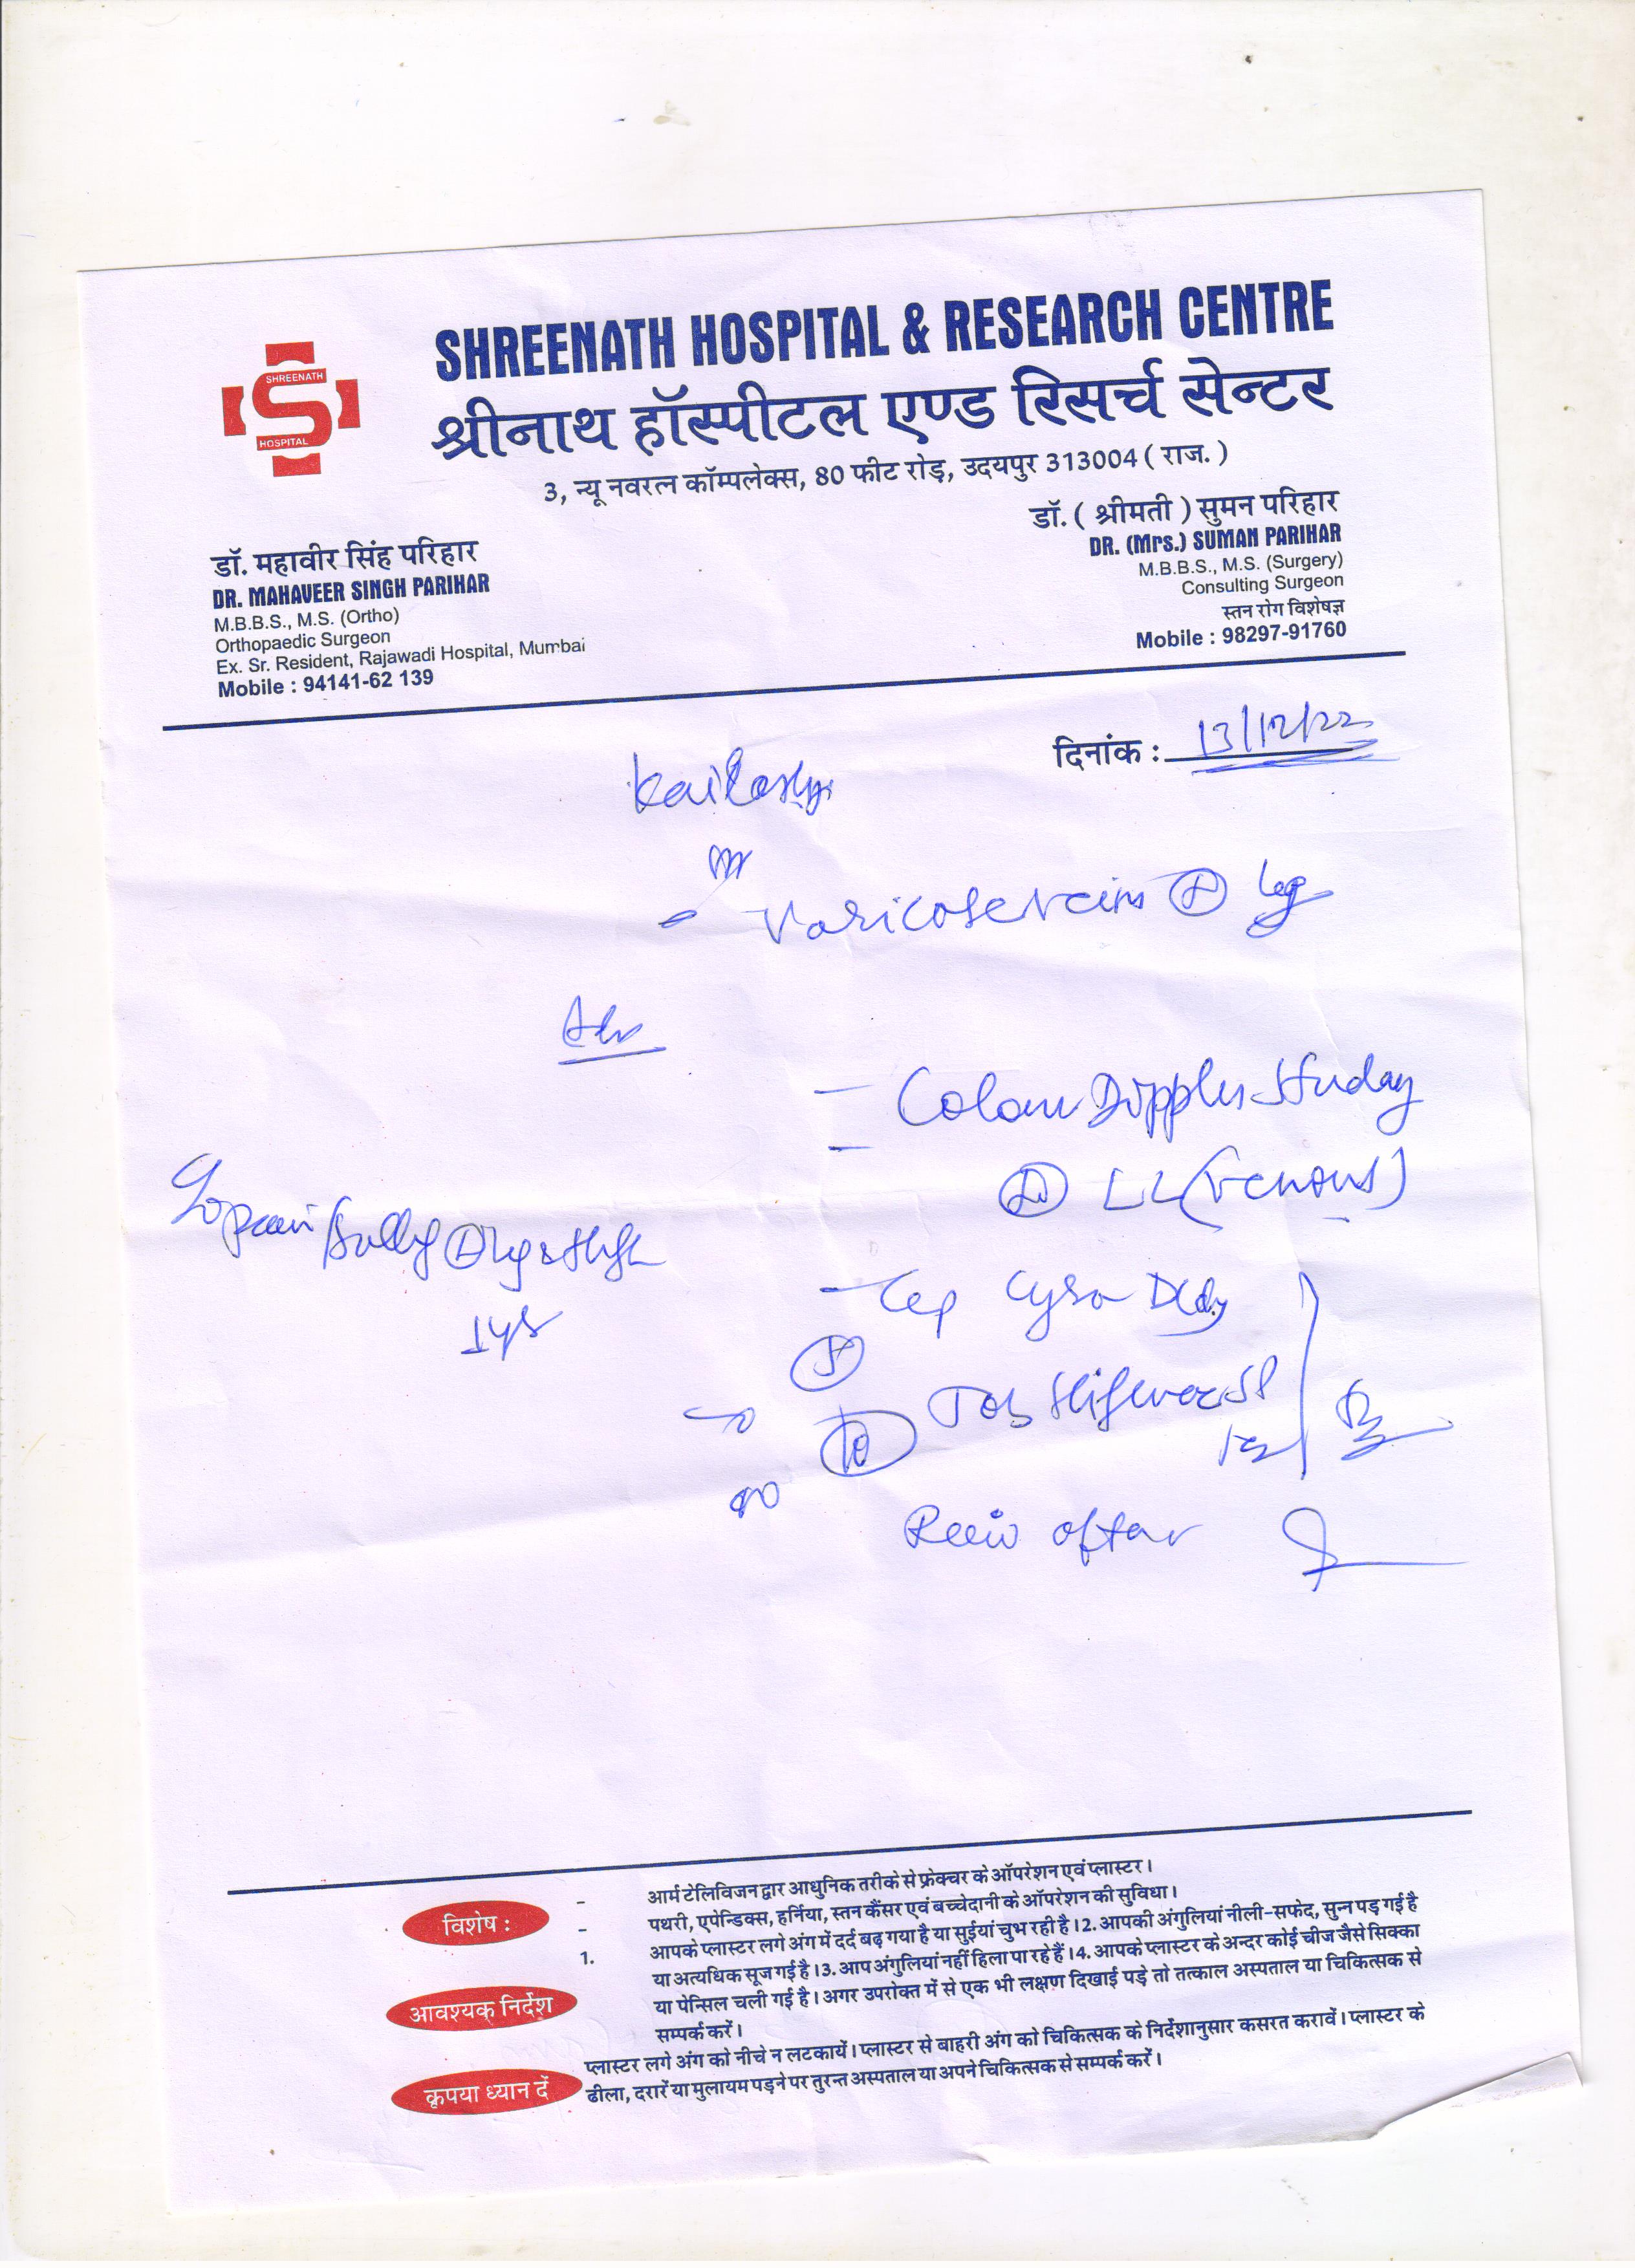 SHREENATH
HOSPITAL
SHREENATH HOSPITAL & RESEARCH CENTRE
श्रीनाथ हॉस्पीटल एण्ड रिसर्च सेन्टर
3, न्यू नवरत्न कॉम्पलेक्स, 80 फीट रोड़, उदयपुर 313004 ( राज. )
डॉ. महावीर सिंह परिहार
DR. MAHAVEER SINGH PARIHAR
M.B.B.S., M.S. (Ortho)
Orthopaedic Surgeon
Ex. Sr. Resident, Rajawadi Hospital, Mumbai
Mobile : 94141-62 139
डॉ. ( श्रीमती ) सुमन परिहार
DR. (Mrs.) SUMAN PARIHAR
M.B.B.S., M.S. (Surgery)
Consulting Surgeon
स्तन रोग विशेषज्ञ
Mobile : 98297-91760
दिनांक : 13/12/22
Kailash
- Varicose Veins leg
Adv
- Colour Doppler Study
LL (Venous)
pain
- Cap
Tab
after
विशेष :
- आर्म टेलिविजन द्वार आधुनिक तरीके से फ्रेक्चर के ऑपरेशन एवं प्लास्टर।
- पथरी, एपेन्डिक्स, हर्निया, स्तन कैंसर एवं बच्चेदानी के ऑपरेशन की सुविधा।
आवश्यक निर्देश
1. आपके प्लास्टर लगे अंग में दर्द बढ़ गया है या सुईयां चुभ रही है। 2. आपकी अंगुलियां नीली-सफेद, सुन्न पड़ गई है
या अत्यधिक सूज गई है। 3. आप अंगुलियां नहीं हिला पा रहे हैं। 4. आपके प्लास्टर के अन्दर कोई चीज जैसे सिक्का
या पेन्सिल चली गई है। अगर उपरोक्त में से एक भी लक्षण दिखाई पड़े तो तत्काल अस्पताल या चिकित्सक से
सम्पर्क करें।
कृपया ध्यान दें
प्लास्टर लगे अंग को नीचे न लटकायें। प्लास्टर से बाहरी अंग को चिकित्सक के निर्देशानुसार कसरत करावें। प्लास्टर के
ढीला, दरारें या मुलायम पड़ने पर तुरन्त अस्पताल या अपने चिकित्सक से सम्पर्क करें।